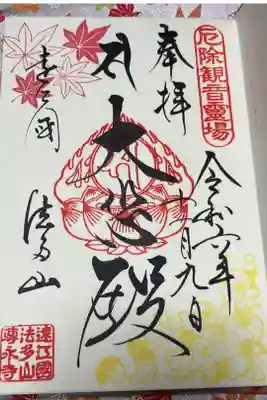 厄除観音霊場
奉拝
令和六年
十一月九日
大悲殿
遠江國
法多山
遠江國
法多山
尊永寺